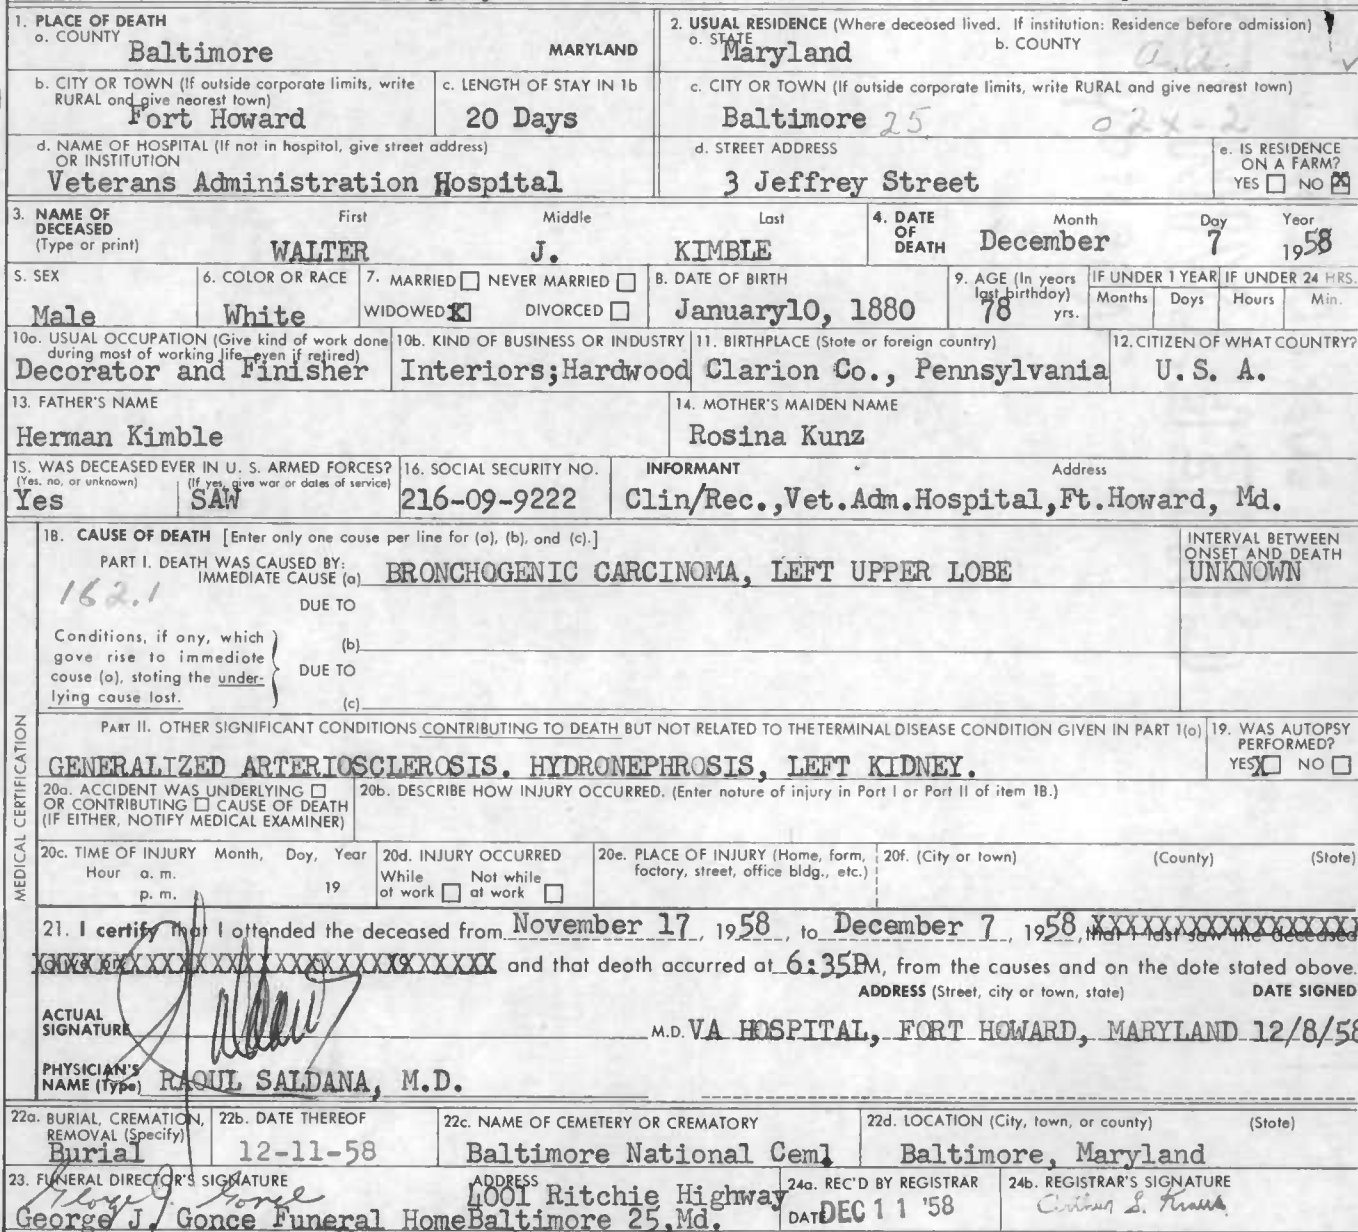 1. PLACE OF DEATH
a. COUNTY
Baltimore MARYLAND
2. USUAL RESIDENCE (Where deceased lived. If institution: Residence before admission)
a. STATE Maryland b. COUNTY a.a.
b. CITY OR TOWN (If outside corporate limits, write RURAL and give nearest town)
Fort Howard
c. LENGTH OF STAY IN 1b
20 Days
c. CITY OR TOWN (If outside corporate limits, write RURAL and give nearest town)
Baltimore 25 02X-2
d. NAME OF HOSPITAL (If not in hospital, give street address)
OR INSTITUTION
Veterans Administration Hospital
d. STREET ADDRESS
3 Jeffrey Street
e. IS RESIDENCE
ON A FARM?
YES NO X
3. NAME OF
DECEASED
(Type or print)
First Middle Last
WALTER J. KIMBLE
4. DATE
OF
DEATH
Month Day Year
December 7 1958
5. SEX
Male
6. COLOR OR RACE
White
7. MARRIED NEVER MARRIED
WIDOWED X DIVORCED
8. DATE OF BIRTH
January10, 1880
9. AGE (In years
last birthday)
78 yrs.
IF UNDER 1 YEAR
Months Days
IF UNDER 24 HRS.
Hours Min.
10a. USUAL OCCUPATION (Give kind of work done
during most of working life, even if retired)
Decorator and Finisher
10b. KIND OF BUSINESS OR INDUSTRY
Interiors;Hardwood
11. BIRTHPLACE (State or foreign country)
Clarion Co., Pennsylvania
12. CITIZEN OF WHAT COUNTRY?
U.S. A.
13. FATHER'S NAME
Herman Kimble
14. MOTHER'S MAIDEN NAME
Rosina Kunz
15. WAS DECEASED EVER IN U. S. ARMED FORCES?
(Yes, no, or unknown) (If yes, give war or dates of service)
Yes SAW
16. SOCIAL SECURITY NO.
216-09-9222
INFORMANT Address
Clin/Rec.,Vet.Adm.Hospital,Ft.Howard, Md.
MEDICAL CERTIFICATION
18. CAUSE OF DEATH [Enter only one cause per line for (a), (b), and (c).]
PART I. DEATH WAS CAUSED BY:
IMMEDIATE CAUSE (a) BRONCHOGENIC CARCINOMA, LEFT UPPER LOBE
INTERVAL BETWEEN
ONSET AND DEATH
UNKNOWN
162.1
DUE TO
Conditions, if any, which
gave rise to immediate
cause (a), stating the under-
lying cause last.
(b)
DUE TO
(c)
PART II. OTHER SIGNIFICANT CONDITIONS CONTRIBUTING TO DEATH BUT NOT RELATED TO THE TERMINAL DISEASE CONDITION GIVEN IN PART 1(a)
GENERALIZED ARTERIOSCLEROSIS. HYDRONEPHROSIS, LEFT KIDNEY.
19. WAS AUTOPSY
PERFORMED?
YES X NO
20a. ACCIDENT WAS UNDERLYING
OR CONTRIBUTING CAUSE OF DEATH
(IF EITHER, NOTIFY MEDICAL EXAMINER)
20b. DESCRIBE HOW INJURY OCCURRED. (Enter nature of injury in Part I or Part II of item 18.)
20c. TIME OF INJURY Month, Day, Year
Hour a. m.
p. m. 19
20d. INJURY OCCURRED
While Not while
at work at work
20e. PLACE OF INJURY (Home, farm,
factory, street, office bldg., etc.)
20f. (City or town) (County) (State)
21. I certify that I attended the deceased from November 17, 1958, to December 7, 1958, that I last saw the deceased
and that death occurred at 6:35PM, from the causes and on the date stated above.
ADDRESS (Street, city or town, state) DATE SIGNED
ACTUAL
SIGNATURE
M.D. VA HOSPITAL, FORT HOWARD, MARYLAND 12/8/58
PHYSICIAN'S
NAME (Type) RAOUL SALDANA, M.D.
22a. BURIAL, CREMATION,
REMOVAL (Specify)
Burial
22b. DATE THEREOF
12-11-58
22c. NAME OF CEMETERY OR CREMATORY
Baltimore National Ceml
22d. LOCATION (City, town, or county) (State)
Baltimore, Maryland
23. FUNERAL DIRECTOR'S SIGNATURE
George J. Gonce
George J. Gonce Funeral Home
ADDRESS
4001 Ritchie Highway
Baltimore 25,Md.
24a. REC'D BY REGISTRAR
DATE DEC 11 '58
24b. REGISTRAR'S SIGNATURE
Arthur S. Kraus